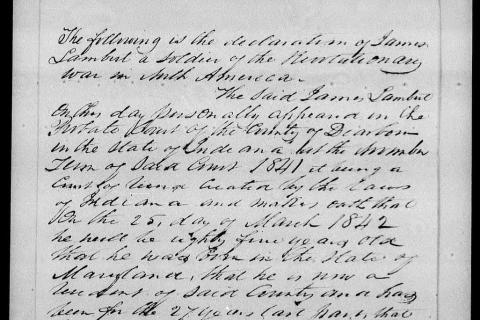 The following is the declaration of James
Lambert a Soldier of the Revolutionary
war in North America.
The Said James Lambert
On this day personally appeared in the
Probate Court of the County of Dearborn
in the State of Indiana at the November
Term of Said Court 1841 it being a
Court of Record created by the Laws
of Indiana and makes oath that
On the 25, day of March 1842
he will be eighty five years old
that he was born in the State of
Maryland, that he is now a
resident of Said County and has
been for the 27 years last past that